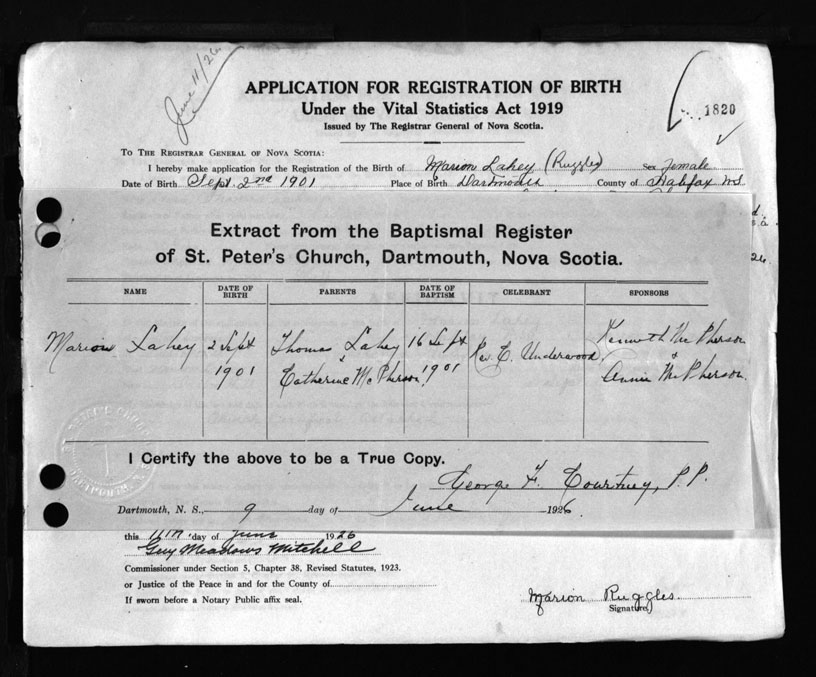 June 11/26
APPLICATION FOR REGISTRATION OF BIRTH
Under the Vital Statistics Act 1919
Issued by The Registrar General of Nova Scotia.
1820
To The Registrar General of Nova Scotia:
I hereby make application for the Registration of the Birth of Marion Lahey (Ruggles) Sex Female
Date of Birth Sept. 2nd 1901 Place of Birth Dartmouth County of Halifax N.S.
Extract from the Baptismal Register
of St. Peter's Church, Dartmouth, Nova Scotia.
NAME DATE OF BIRTH PARENTS DATE OF BAPTISM CELEBRANT SPONSORS
Marion Lahey 2 Sept 1901 Thomas Lahey & Catherine McPherson 16 Sept 1901 Rev. C. Underwood Kenneth McPherson & Annie McPherson.
I Certify the above to be a True Copy.
George F. Courtney, P.P.
Dartmouth, N. S., 9 day of June 1926
this 11th day of June 1926
Guy Meadows Mitchell
Commissioner under Section 5, Chapter 38, Revised Statutes, 1923.
or Justice of the Peace in and for the County of
If sworn before a Notary Public affix seal.
Marion Ruggles.
Signature